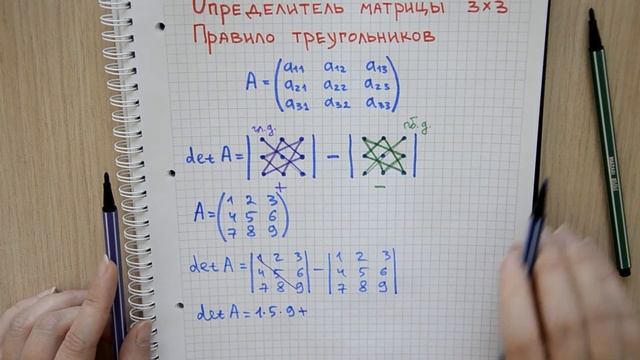 Определитель матрицы 3×3
Правило треугольников
A = (a₁₁ a₁₂ a₁₃
a₂₁ a₂₂ a₂₃
a₃₁ a₃₂ a₃₃)
гл.д. поб.д.
det A = | | − | |
+ −
A = (1 2 3
4 5 6
7 8 9)
det A = |1 2 3
4 5 6
7 8 9| − |1 2 3
4 5 6
7 8 9|
det A = 1·5·9 +